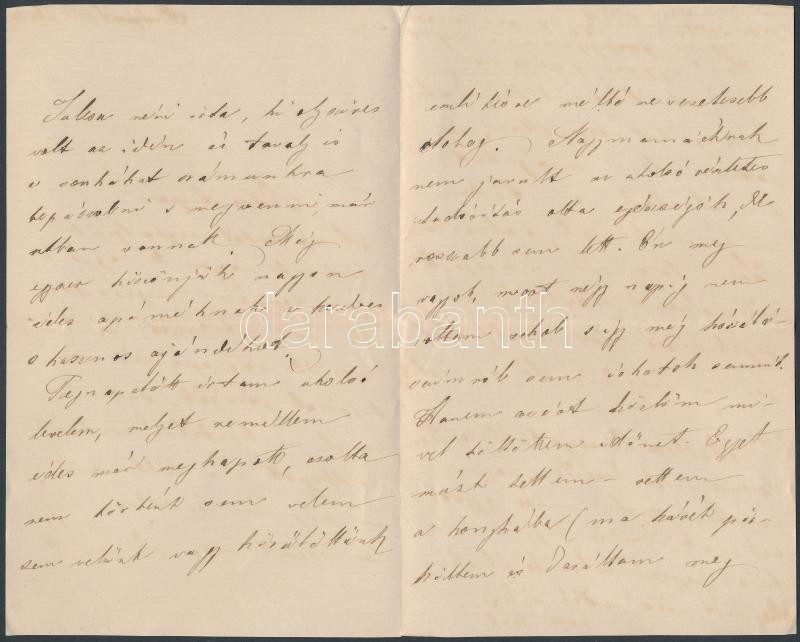 Julcsa néni írta, hi oly szíves
volt az idén és tavaly is
a sonkákat számunkra
bepácolni s megvenni, már
utban vannak. Még
egyszer köszönjük nagyon
édes apáméknak a kedves
s hasznos ajándékot.
Tegnapelőtt írtam utolsó
levelem, melyet reméllem
édes már megkapott, azolta
nem történt sem velem
sem velünk vagy körülöttünk
említésre méltó nevezetesebb
dolog. Nagymamáéknak
nem javult az utolsó részletes
tudósítás olta egészségök, de
rosszabb sem lett. Én meg
vagyok, most négy napig nem
voltam sehol s így még
sem írhatok semmit.
Hanem azért közlöm mi-
vel töltöttem időmet. Egyet
mást tettem - vettem
a konyhába (ma kávét pör-
költem és daráltam meg
darabanth